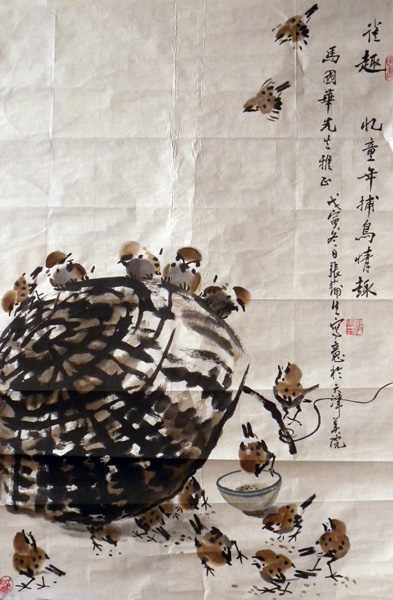 雀趣
忆童年捕鳥情趣
馬國華先生雅正
戊寅冬日張蒲生寫意於天津美院